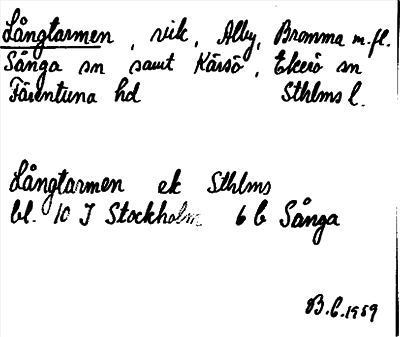 Långtarmen, vik, Alby, Bromma m.fl.
Sånga sn samt Kärsö, Ekerö sn
Färentuna hd Sthlms l.
Långtarmen ek Sthlms
bl. 10 I Stockholm 6 b Sånga
B.C. 1959